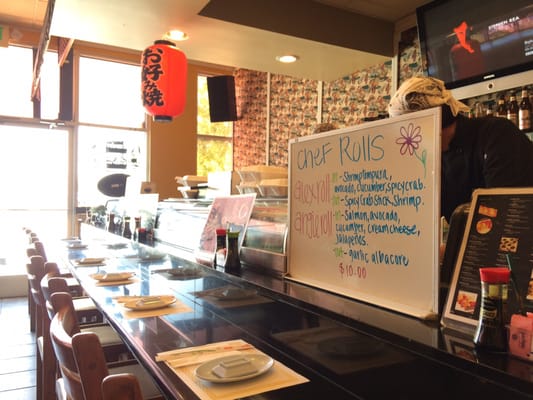 お好み焼
chef Rolls
alex roll
- Shrimp tempura,
avocado, cucumber, spicy crab.
- Spicy Crab Stick Shrimp.
angie roll
- Salmon, avocado,
cucumber, cream cheese,
jalapeños.
- garlic albacore
$10.00